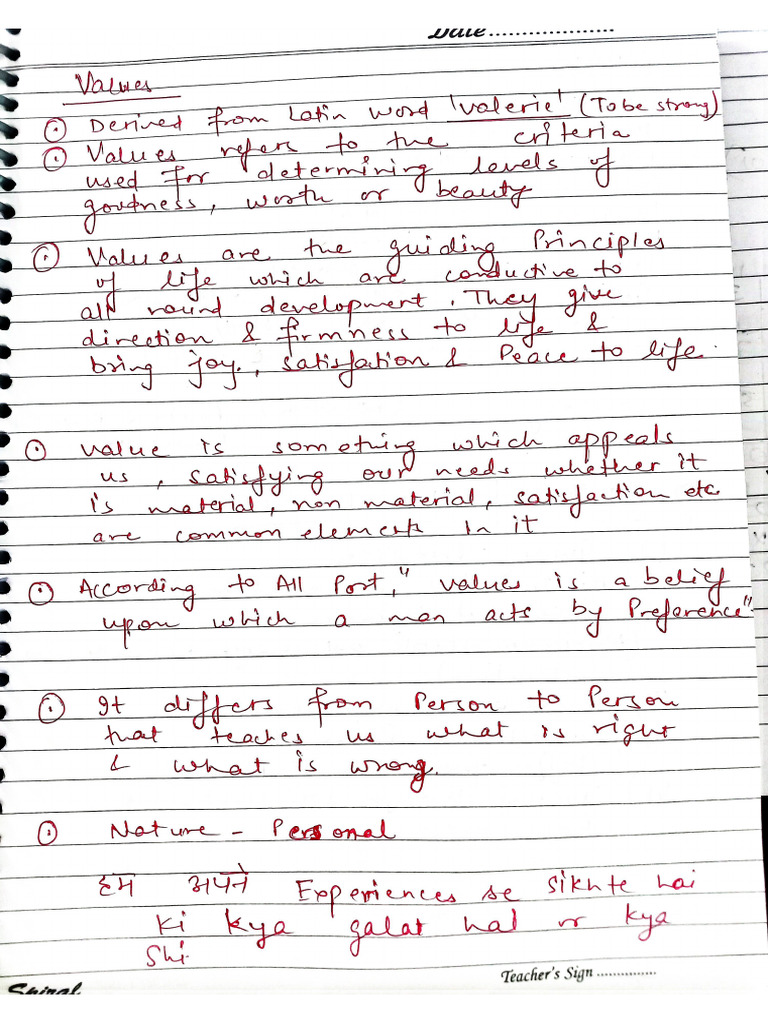 Date....................
Values
⊙ Derived from Latin word 'valerie' (To be strong)
⊙ Values refers to the criteria
used for determining levels of
goodness, worth or beauty
⊙ Values are the guiding Principles
of life which are conductive to
all round development. They give
direction & firmness to life &
bring joy, satisfaction & Peace to life.
⊙ value is something which appeals
us, satisfying our needs whether it
is material, non material, satisfaction etc
are common elements in it
⊙ According to All Port, "values is a belief
upon which a man acts by Preference"
⊙ It differs from Person to Person
that teaches us what is right
& what is wrong.
⊙ Nature - Personal
हम अपने Experiences se sikhte hai
Ki kya galat hai or kya
Shi.
Teacher's Sign ...............
Spiral